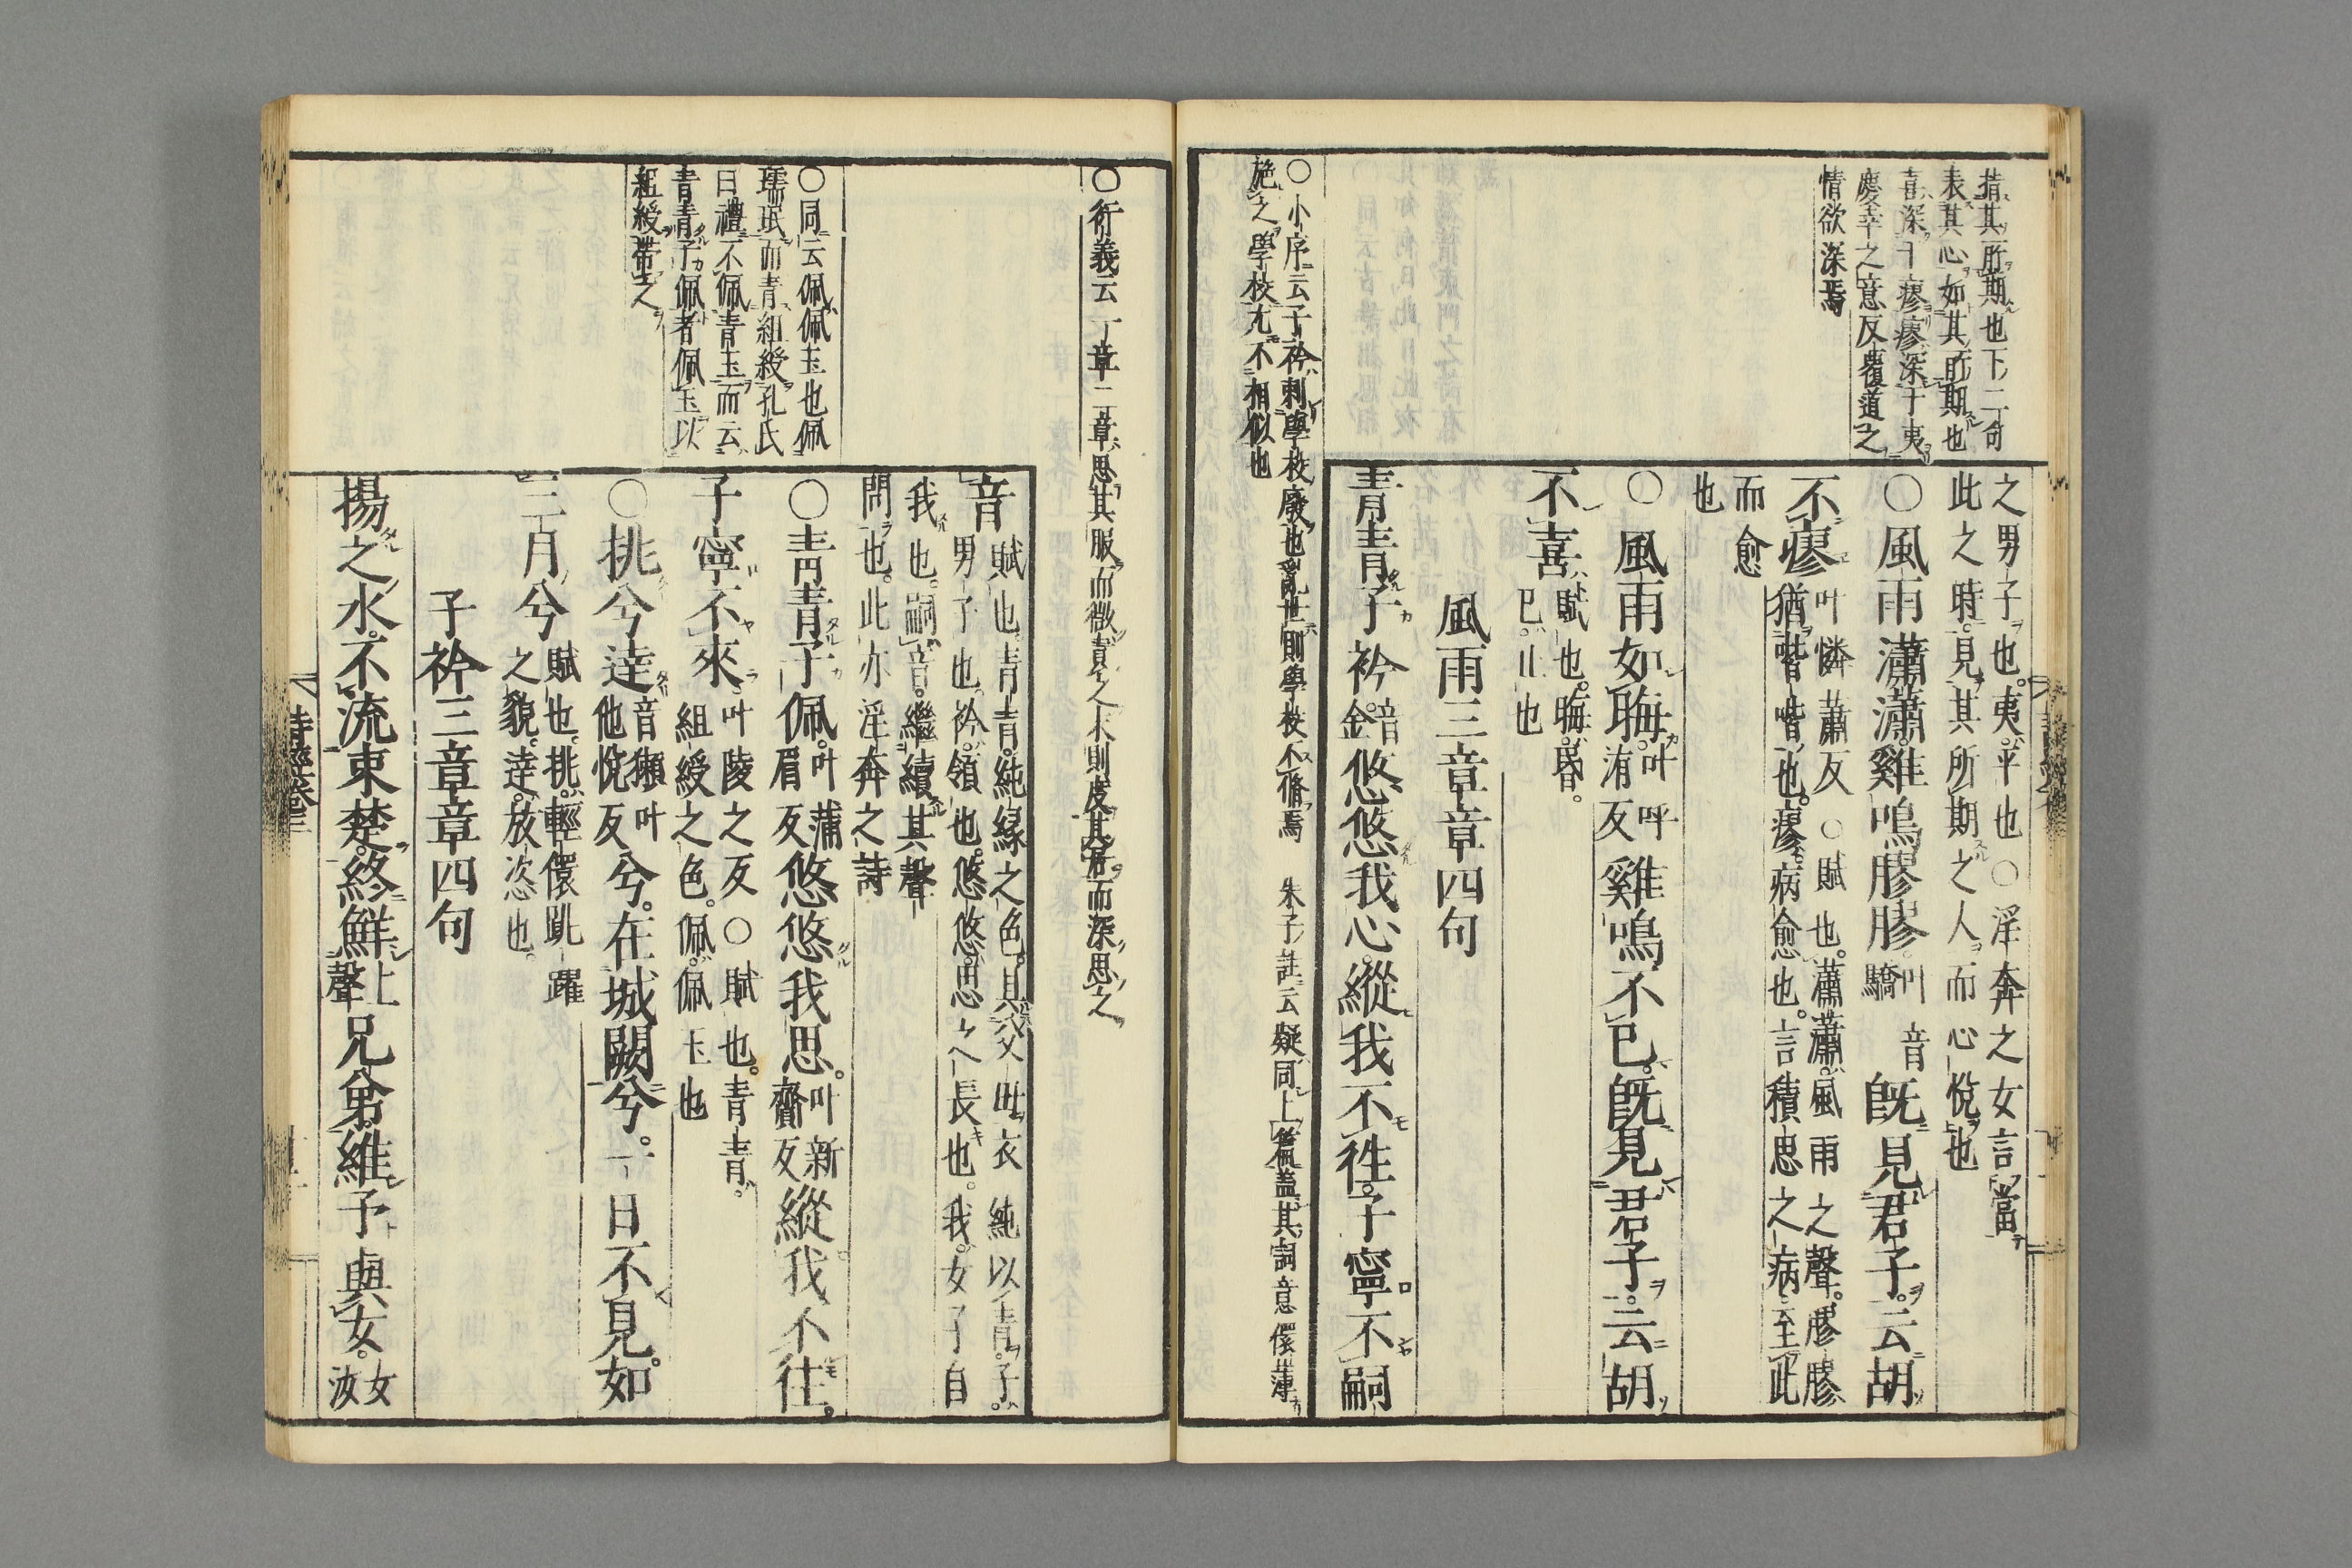 指其所期也下二句
表其心如其所期也
喜深于瘳瘳深于夷
慶幸之意反覆道之
情欲深焉
之男子也。夷。平也○淫奔之女言當
此之時。見其所期之人。而心悅也
○風雨瀟瀟。雞鳴膠膠。叶音驕既見君子。云胡
不瘳叶憐蕭反○賦也。瀟瀟。風雨之聲。膠膠
猶喈喈也。瘳。病愈也。言積思之病。至此
而愈
也
○風雨如晦。叶呼洧反雞鳴不已。既見君子。云胡
不喜賦也。晦。昏。
已。止也
風雨三章章四句
青青子衿音金。悠悠我心。縱我不徃。子寧不嗣
○小序云子衿刺學校廢也亂世則學校不脩焉　朱子註云疑同上篇蓋其詞意儇薄
施之學校尤不相似也
○衍義云一章二章思其服而微責之末則度其客而深思之
音賦也。青青。純緣之色。具父母衣純以青。子。
男子也。衿。領也。悠悠。思之長也。我。女子自
我也。嗣音。繼續其聲
問也。此亦淫奔之詩
○同云佩佩玉也佩
瓀珉而青組綬孔氏
曰禮不佩青玉而云
青青子佩者佩玉以
組綬帶之
○青青子佩。叶蒲眉反悠悠我思。叶新齎反縱我不往。
子寧不來叶陵之反○賦也。青青。
組綬之色。佩。佩玉也
○挑兮達音獺叶他悅反兮。在城闕兮。一日不見。如
三月兮賦也。挑。輕儇跳躍
之貌。達。放恣也。
子衿三章章四句
揚之水。不流束楚。終鮮上聲兄弟。維予與女。女汝
詩經卷三